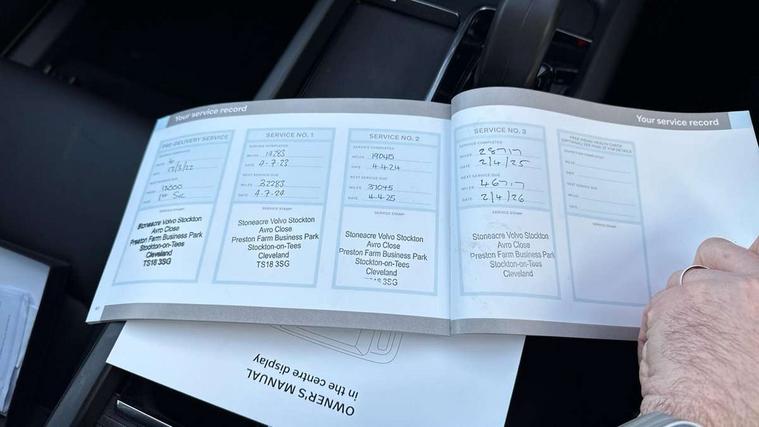 Your service record
PRE-DELIVERY SERVICE
SERVICE COMPLETED
MILES
DATE
NEXT SERVICE DUE
MILES
DATE
SERVICE STAMP
Stoneacre Volvo Stockton
Avro Close
Preston Farm Business Park
Stockton-on-Tees
Cleveland
TS18 3SG
SERVICE NO. 1
SERVICE COMPLETED
MILES
DATE
NEXT SERVICE DUE
MILES 32283
DATE
SERVICE STAMP
Stoneacre Volvo Stockton
Avro Close
Preston Farm Business Park
Stockton-on-Tees
Cleveland
TS18 3SG
SERVICE NO. 2
SERVICE COMPLETED
MILES 19045
DATE 4.4.24
NEXT SERVICE DUE
MILES 37045
DATE 4.4.25
SERVICE STAMP
Stoneacre Volvo Stockton
Avro Close
Preston Farm Business Park
Stockton-on-Tees
Cleveland
3SG
Your service record
SERVICE NO. 3
SERVICE COMPLETED
MILES 28717
DATE 2/4/25
NEXT SERVICE DUE
MILES 46717
DATE 2/4/26
SERVICE STAMP
Stoneacre Volvo Stockton
Avro Close
Preston Farm Business Park
Stockton-on-Tees
Cleveland
NEXT SERVICE DUE
MILES
DATE
SERVICE STAMP
OWNER'S MANUAL
in the centre display